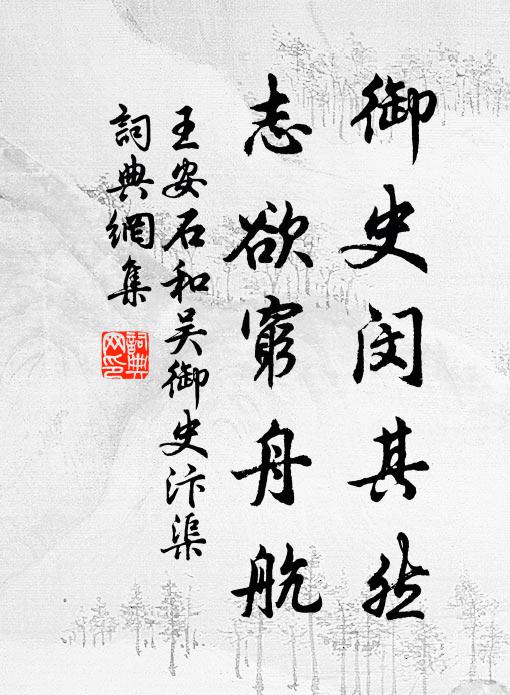 御史闵其然
志欲窮舟航
王安石和吴御史汴渠
詞典網集
詞典
网印